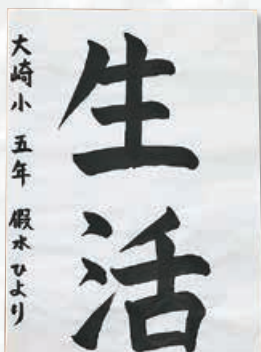 生活
大崎小 五年 假水 ひより